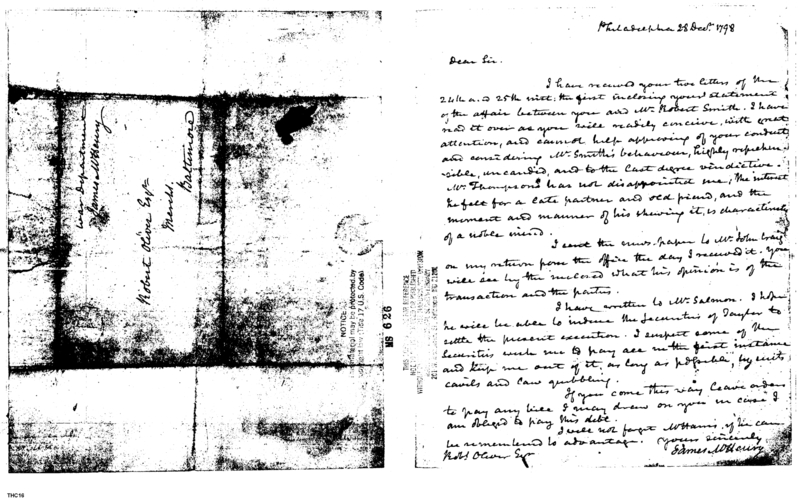 war department
James McHenry
Robert Oliver Esqr
Mercht.
Baltimore
NOTICE
material may be protected by
copyright law (Title 17 U.S. Code)
MS 626
Philadelphia 28 Decr. 1798
Dear Sir.
I have received your two letters of the
24th and 25th inst: the first enclosing your statement
of the affair between you and Mr. Robert Smith. I have
read it over as you will readily conceive, with great
attention, and cannot help approving of your conduct
and considering Mr. Smith's behaviour, highly reprehen-
sible, uncandid, and to the last degree vindictive.
Mr. Thompson has not disappointed me; the interest
he felt for a late partner and old friend, and the
moment and manner of his shewing it, is characteristic
of a noble mind.
I sent the news-paper to Mr. John Craig
on my return from the office the day I received it. You
will see by the inclosed what his opinion is of the
transaction and the parties.
I have written to Mr. Salmon. I hope
he will be able to induce the Securities of Taylor to
settle the present execution. I suspect some of the
Securities wish me to pay all in the first instance
and keep me out of it, as long as possible, by suits
cavils and law quibbling.
If you come this way leave orders
to pay any bill I may draw on you in case I
am obliged to pay this debt.
I will not forget if he can
be remembered to advantage. Yours sincerely
James McHenry
Robt Oliver Esqr
THC16